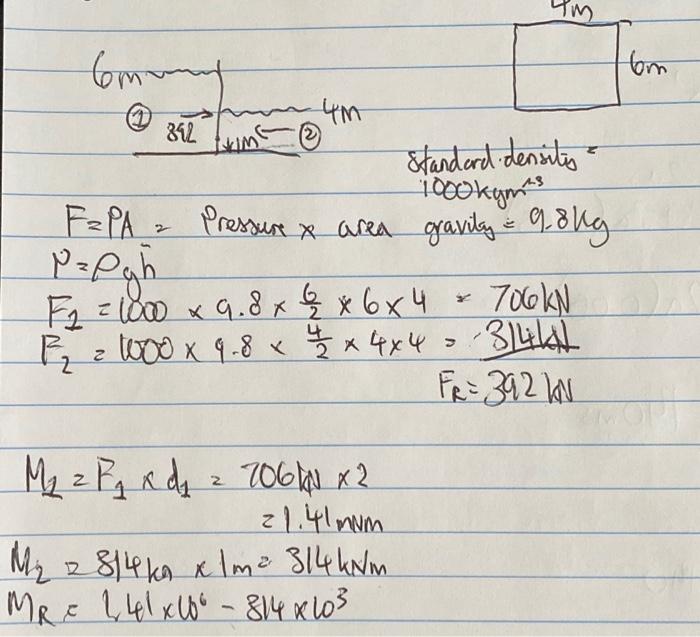 4m
6m
6m
① 392 4M
1m ②
Standard density =
1000kgm⁻³
F=PA = Pressure x area gravity = 9.8kg
P=ρgh̄
F1 = 1000 x 9.8 x 6/2 x 6 x 4 = 706kN
F2 = 1000 x 9.8 x 4/2 x 4x4 = -314kN
FR = 392 kN
M1 = F1 x d1 = 706kN x 2
= 1.41mNm
M2 = 314kn x 1m = 314kNm
MR = 1.41 x10⁶ - 314 x10³